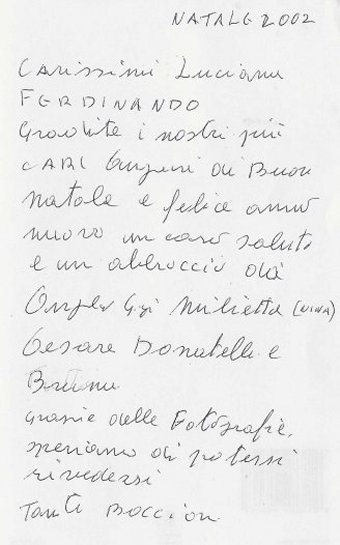 NATALE 2002
Carissimi Luciana
FERDINANDO
Gradite i nostri più
CARI Auguri di Buon
Natale e felice anno
nuovo un caro saluto
e un abbraccio da
Gigi Milietta (NINA)
Cesare Donatella e
Bruna
Grazie delle Fotografie,
speriamo di potersi
rivedersi
Tanti Baccion